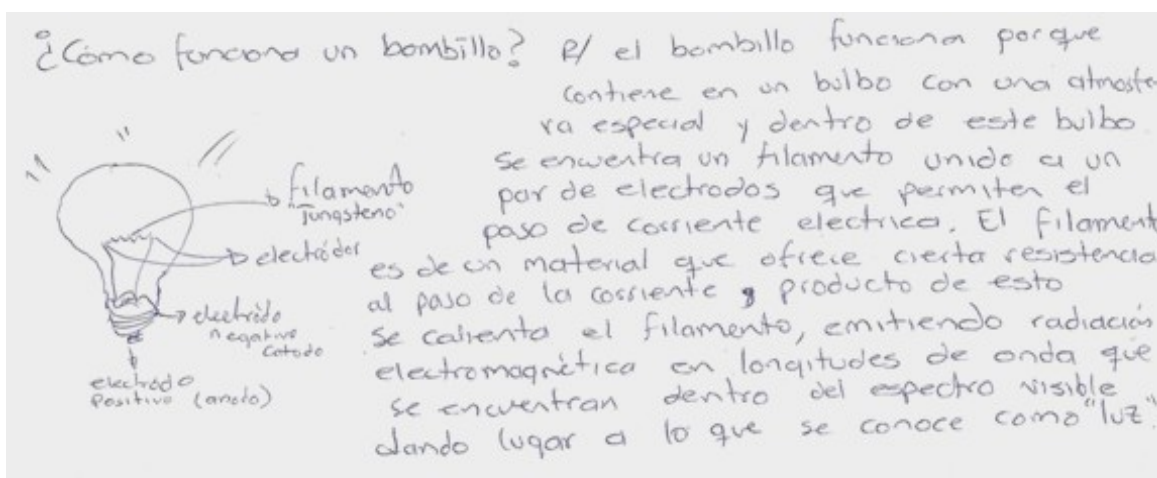 ¿Cómo funciona un bombillo? R/ el bombillo funciona porque
contiene en un bulbo con una atmosfe
ra especial y dentro de este bulbo
se encuentra un filamento unido a un
par de electrodos que permiten el
paso de corriente electrica. El filament
es de un material que ofrece cierta resistencia
al paso de la corriente, producto de esto
se calienta el filamento, emitiendo radiación
electromagnética en longitudes de onda que
se encuentran dentro del espectro visible
dando lugar a lo que se conoce como "luz".
filamento
"Tungsteno"
electródos
electródo
negativo
catodo
electródo
Positivo (anodo)